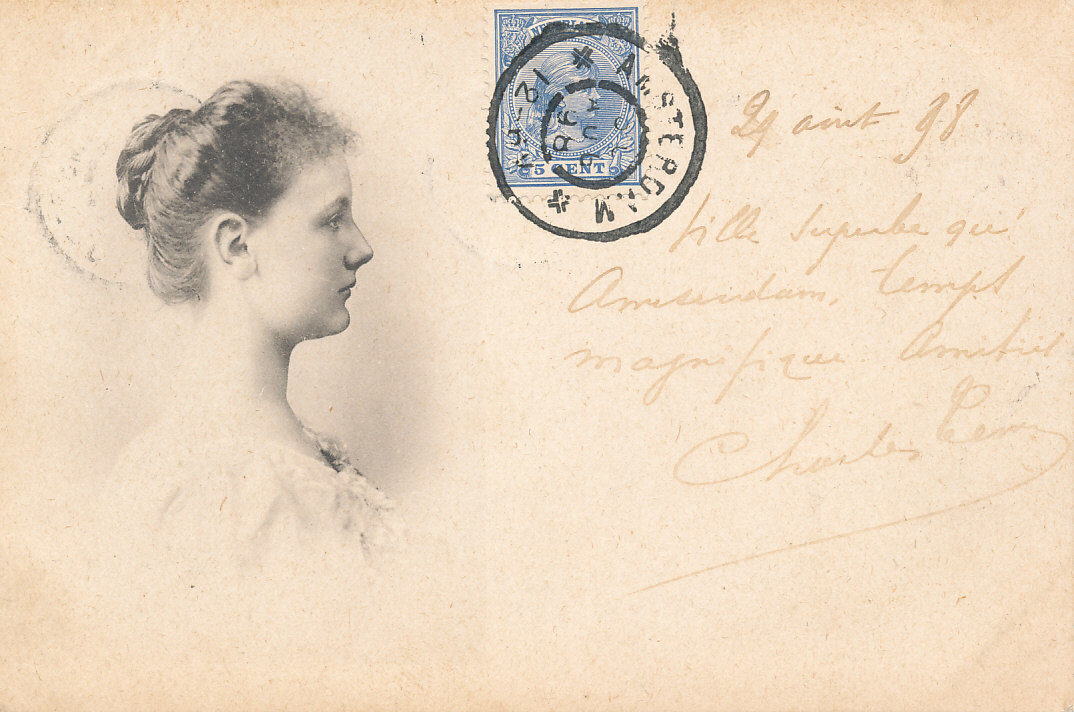 NEDERLAND
5 CENT
AMSTERDAM
12-1N
29 aout 98.
Ville superbe que
Amserdam, temps
magnifique Amitiés
Charles